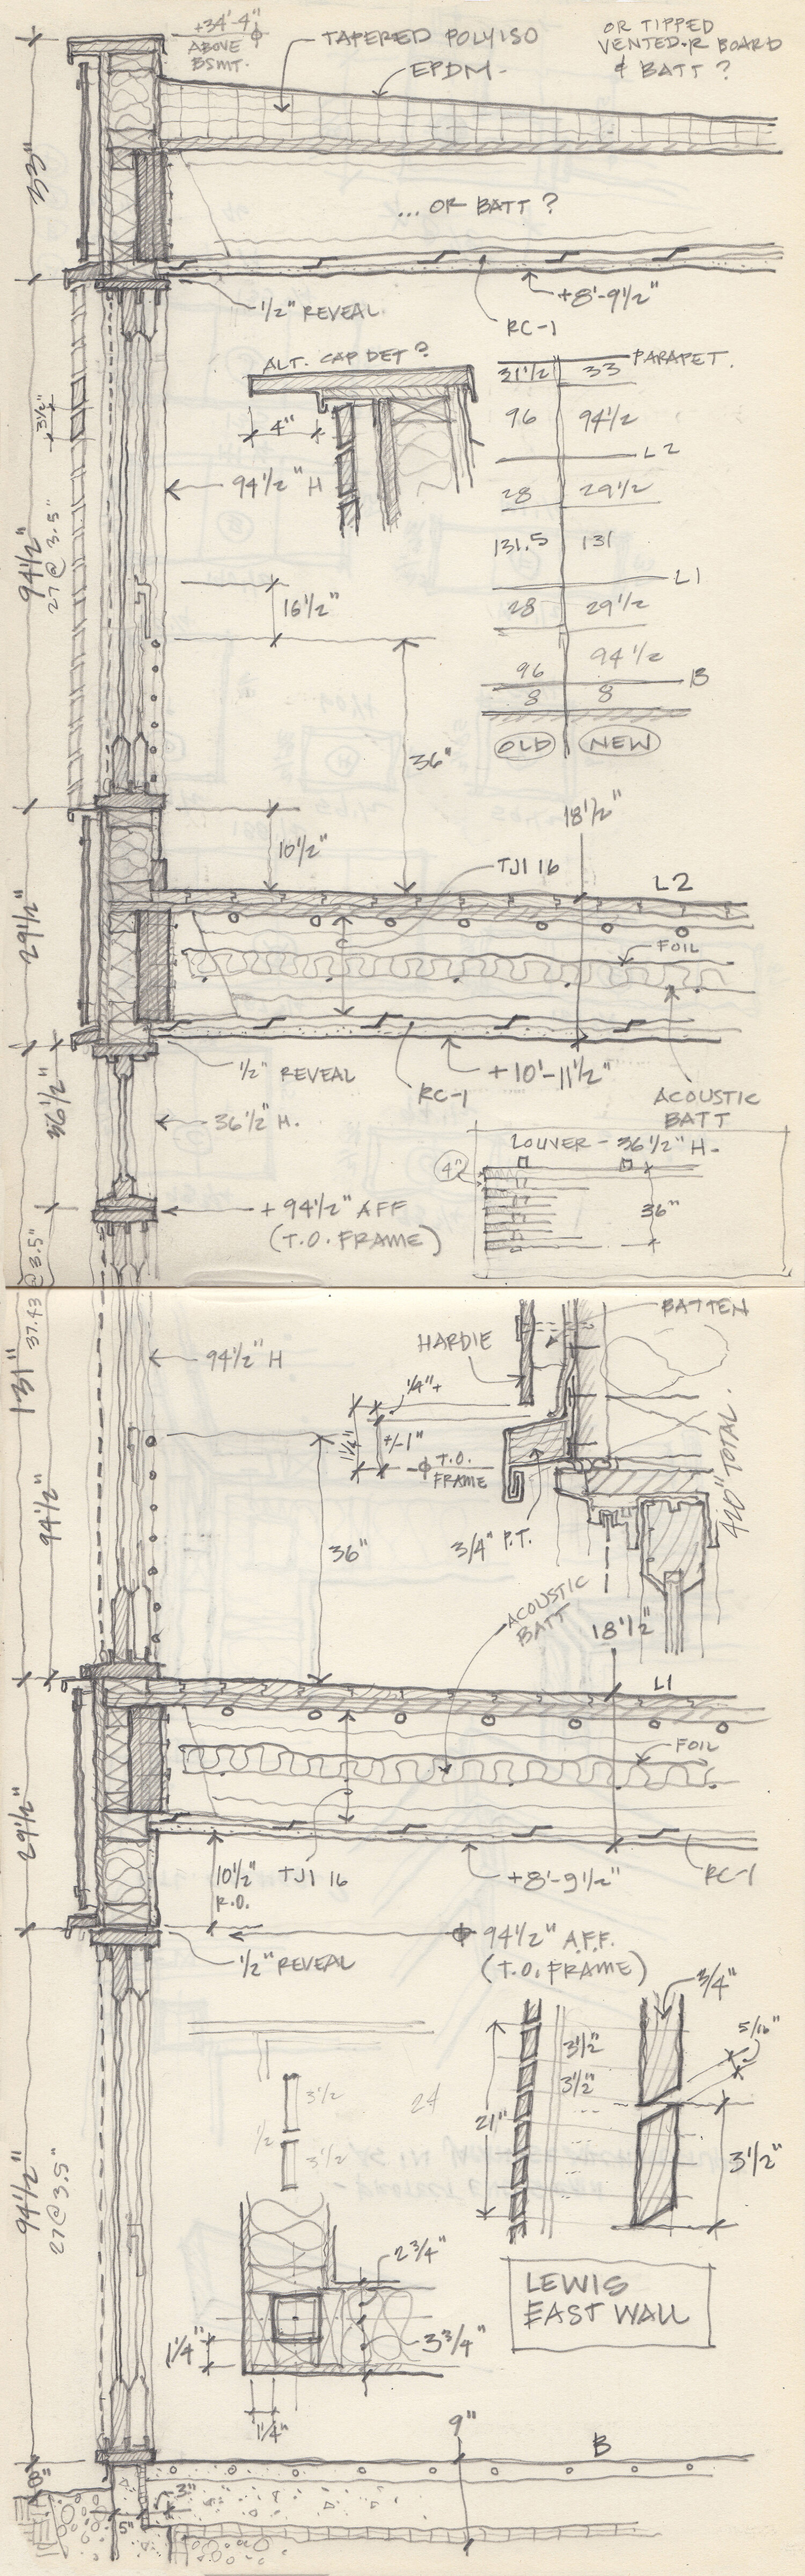 +34'-4"
ABOVE
BSMT.
TAPERED POLYISO
EPDM-
OR TIPPED
VENTED-R BOARD
& BATT ?
33"
... OR BATT ?
1/2" REVEAL
+8'-9 1/2"
RC-1
ALT. CAP DET ?
4"
3 1/2"
94 1/2" H
94 1/2"
27 @ 3.5"
31 1/2 33 PARAPET.
96 94 1/2
L2
28 29 1/2
131.5 131
L1
28 29 1/2
96 94 1/2
B
8 8
OLD NEW
16 1/2"
36"
10 1/2"
18 1/2"
TJI 16
L2
29 1/2"
FOIL
1/2" REVEAL
RC-1
+10'-11 1/2"
ACOUSTIC
BATT
36 1/2"
36 1/2" H.
LOUVER - 36 1/2" H-
4"
36"
+94 1/2" AFF
(T.O. FRAME)
37.43 @ 3.5"
131"
94 1/2"
94 1/2" H
HARDIE
BATTEN
1/4"+
1 1/4"
+/-1"
T.O.
FRAME
3/4" P.T.
420" TOTAL.
36"
ACOUSTIC
BATT
18 1/2"
L1
FOIL
29 1/2"
10 1/2"
R.O.
TJI 16
+8'-9 1/2"
RC-1
94 1/2" A.F.F.
(T.O. FRAME)
1/2" REVEAL
3/4"
5/16"
3 1/2
1/2
3 1/2
24
3 1/2"
3 1/2"
21"
3 1/2"
94 1/2"
27 @ 3.5"
2 3/4"
3 3/4"
1 1/4"
1 1/4"
LEWIS
EAST WALL
9"
B
8"
3"
5"